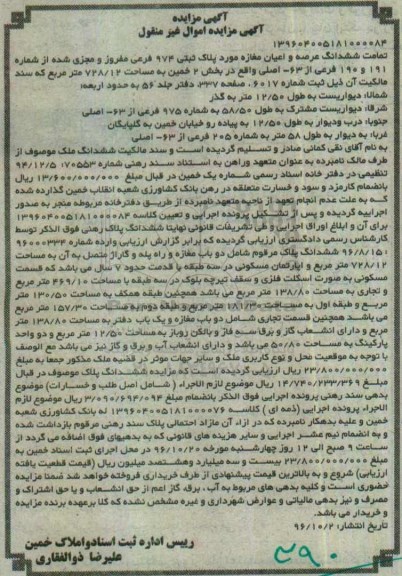 آگهی مزایده
آگهی مزایده اموال غیر منقول
۱۳۹۶۰۴۰۰۵۱۸۱۰۰۰۰۸۴
تمامت ششدانگ عرصه و اعیان مغازه مورد پلاک ثبتی ۹۷۴ فرعی مفروز و مجزی شده از شماره
۱۹۱ و ۱۹۰ فرعی از ۶۳- اصلی واقع در بخش ۲ خمین به مساحت ۷۲۸/۱۲ متر مربع که سند
مالکیت آن ذیل ثبت شماره ۶۰۱۷، صفحه ۳۳۷، دفتر جلد ۵۶ به حدود اربعه:
شمالا: دیواریست به طول ۱۲/۵۰ متر به گذر
شرقا: دیواریست مشترک به طول ۵۸/۵۰ به شماره ۹۷۵ فرعی از ۶۳- اصلی
جنوبا: درب ودیوار به طول ۱۲/۵۰ به پیاده رو خیابان خمین به گلپایگان
غربا: به دیوار به طول ۵۸ متر به شماره ۲۰۵ فرعی از ۶۳- اصلی
به نام آقای تقی کمانی صادر و تسلیم گردیده است و سند مالکیت ششدانگ ملک موصوف از
طرف مالک نامبرده به عنوان متعهد وراهن به استناد سند رهنی شماره ۷۰۵۵۳: ۹۴/۱۲/۵
تنظیمی در دفتر خانه اسناد رسمی شماره یک خمین در قبال مبلغ ۱۳/۶۰۰/۰۰۰/۰۰۰ ریال
بانضمام کارمزد و سود و خسارت متعلقه در رهن بانک کشاورزی شعبه انقلاب خمین گذارده شده
که به علت عدم انجام تعهد از ناحیه متعهد نامبرده از طریق دفترخانه مربوطه منجر به صدور
اجراییه گردیده و پس از تشکیل پرونده اجرایی و تعیین کلاسه ۱۳۹۶۰۴۰۰۵۱۸۱۰۰۰۰۸۴
برای آن و ابلاغ اوراق اجرایی و طی تشریفات قانونی نهایتا ششدانگ پلاک رهنی فوق الذکر توسط
کارشناس رسمی دادگستری ارزیابی گردیده که برابر گزارش ارزیابی وارده شماره ۹۶۰۰۰۳۳۴
۹۶/۸/۱۵۰ ششدانگ پلاک مرقوم شامل دو باب مغازه و راه پله و گاراژ متصل به آن به مساحت
۷۲۸/۱۲ متر مربع و آپارتمان مسکونی در سه طبقه با قدمت حدود ۷ سال می باشد که قسمت
مسکونی به صورت اسکلت فلزی و سقف تیرچه بلوک در سه طبقه با مساحت ۴۶۹/۱۰ متر مربع
و تجاری به مساحت ۱۳۸/۸۰ متر مربع می باشد همچنین طبقه همکف به مساحت ۱۳۰/۵۰ متر
مربع و طبقه اول به مساحت ۱۸۱/۳۰ متر مربع و طبقه دوم به مساحت ۱۵۷/۳۰ متر مربع
می باشد همچنین قسمت تجاری شامل دو باب مغازه و یک باب دفتر به مساحت ۱۳۸/۸۰ متر
مربع و دارای انشعاب گاز و برق سه فاز و بالکن روباز به مساحت ۱۲/۵۰ متر مربع و دو واحد
پارکینگ به مساحت ۵۰/۸۰ می باشد و دارای انشعاب آب و برق و گاز نیز می باشد مع الوصف
با توجه به موقعیت محل و نوع کاربری ملک و سایر جهات موثر در قضیه ملک مذکور جمعا به مبلغ
۲۳/۸۰۰/۰۰۰/۰۰۰ ریال ارزیابی گردیده است که مزایده ششدانگ پلاک موصوف در قبال
مبلغ ۱۴/۷۴۰/۲۳۳/۳۶۹ ریال موضوع لازم الاجراء ( شامل اصل طلب و خسارات) موضوع
بدهی سند رهنی پرونده اجرایی فوق الذکر بانضمام مبلغ ۳/۰۹۰/۶۹۴/۰۹۴ ریال موضوع لازم
الاجراء پرونده اجرایی (ذمه ای ) کلاسه ۱۳۹۶۰۴۰۰۵۱۸۱۰۰۰۰۷۶ له بانک کشاورزی شعبه
خمین و علیه بدهکار نامبرده که در ازاء آن مازاد احتمالی پلاک سند رهنی مرقوم بازداشت شده
و به انضمام نیم عشر اجرایی و سایر هزینه های قانونی که به بدهیهای فوق اضافه می گردد از
ساعت ۹ صبح الی ۱۲ روز چهارشنبه مورخه ۹۶/۱۰/۲۰ در محل اجرای ثبت اسناد خمین به
مبلغ ۲۳/۸۰۰/۰۰۰/۰۰۰ بیست و سه میلیارد وهشتصد میلیون ریال (قیمت قطعیت یافته
ارزیابی) شروع و به بالاترین قیمت پیشنهادی از طرف خریداری فروخته خواهد شد ضمنا مزایده
حضوری است و کلیه بدهی های مربوط به آب ، برق، گاز اعم از حق انشعاب و یا حق اشتراک و
مصرف و نیز بدهی مالیاتی و عوارض شهرداری و غیره مشخص نشده که کلا برعهده برنده مزایده
و خریدار می باشد.
تاریخ انتشار: ۹۶/۱۰/۲
رییس اداره ثبت اسنادواملاک خمین
علیرضا ذوالفقاری
۳۹۰